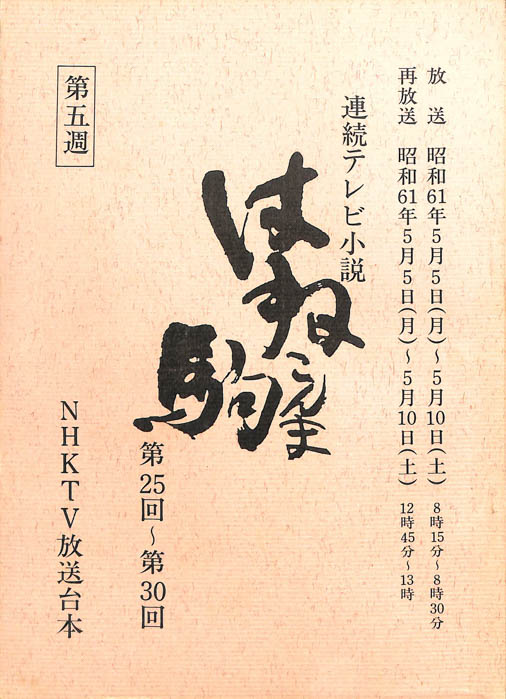 放送 昭和61年5月5日(月)～5月10日(土) 8時15分～8時30分
再放送 昭和61年5月5日(月)～5月10日(土) 12時45分～13時
連続テレビ小説
はね駒
こんま
第25回～第30回
第五週
NHKTV放送台本